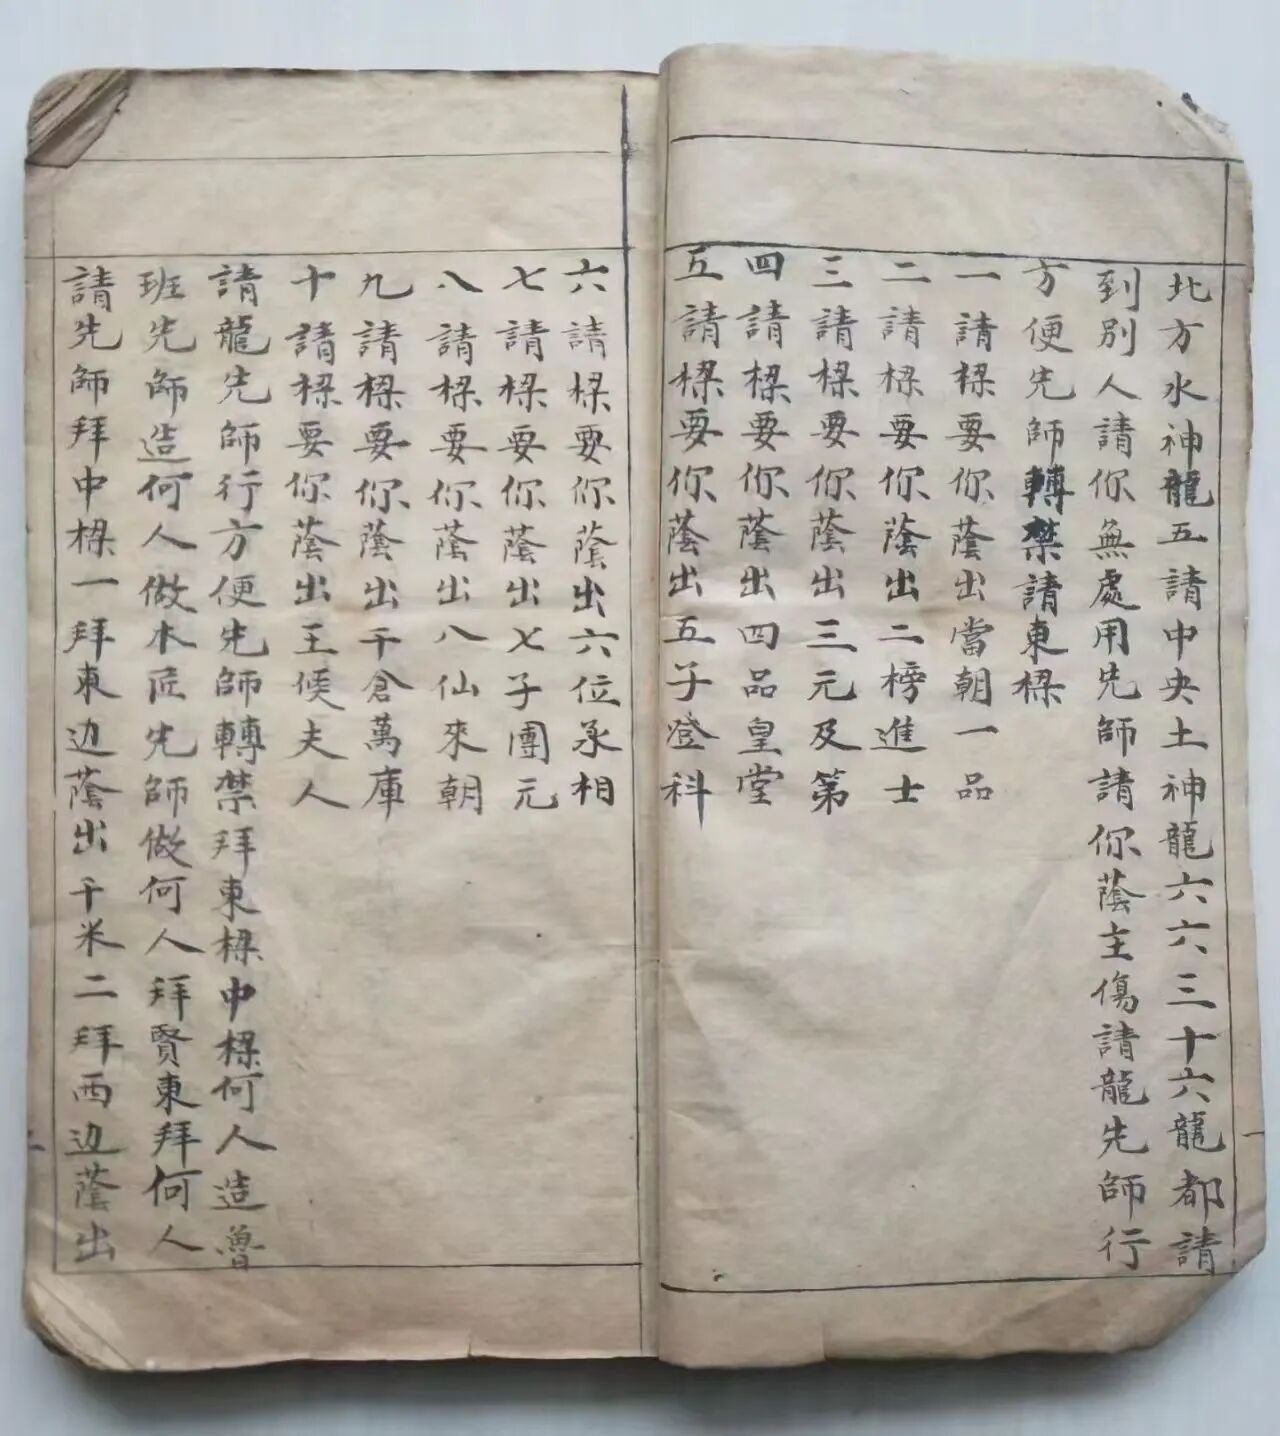 北方水神龍五請中央土神龍六六三十六龍都請
到別人請你無處用先師請你蔭主傷請龍先師行
方便先師轉禁請東樑
一請樑要你蔭出當朝一品
二請樑要你蔭出二榜進士
三請樑要你蔭出三元及第
四請樑要你蔭出四品皇堂
五請樑要你蔭出五子登科
六請樑要你蔭出六位丞相
七請樑要你蔭出七子團元
八請樑要你蔭出八仙來朝
九請樑要你蔭出千倉萬庫
十請樑要你蔭出王候夫人
請龍先師行方便先師轉禁拜東樑中樑何人造魯
班先師造何人做木匠先師做何人拜賢東拜何人
請先師拜中樑一拜東边蔭出千米二拜西边蔭出